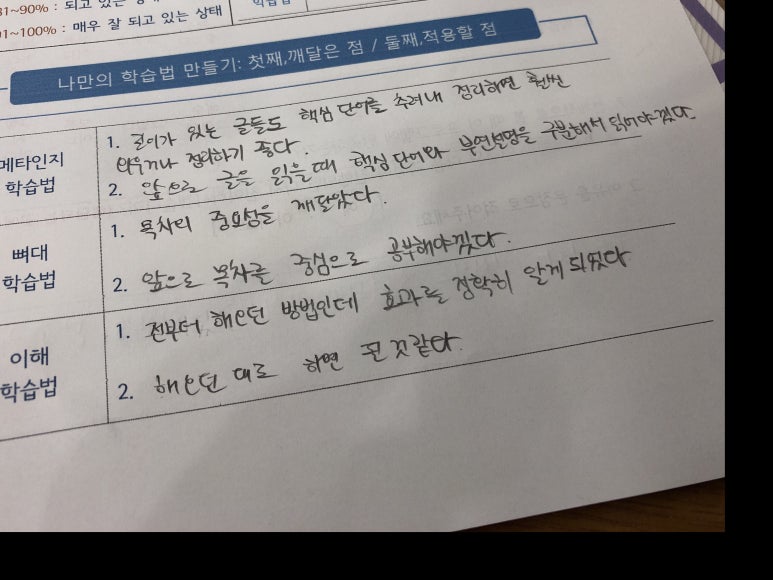 81~90% : 되고 있는 상태
91~100% : 매우 잘 되고 있는 상태
학습법
나만의 학습법 만들기: 첫째,깨달은 점 / 둘째,적용할 점
메타인지
학습법
1. 길이가 있는 글들도 핵심 단어를 추려내 정리하면 훨씬
외우거나 정리하기 좋다.
2. 앞으로 글을 읽을 때 핵심 단어와 부연설명을 구분해서 읽어야겠다.
뼈대
학습법
1. 목차의 중요성을 깨달았다.
2. 앞으로 목차를 중심으로 공부해야겠다.
이해
학습법
1. 전부터 해오던 방법인데 효과를 정확히 알게 되었다
2. 해오던 대로 하면 될 것 같다.